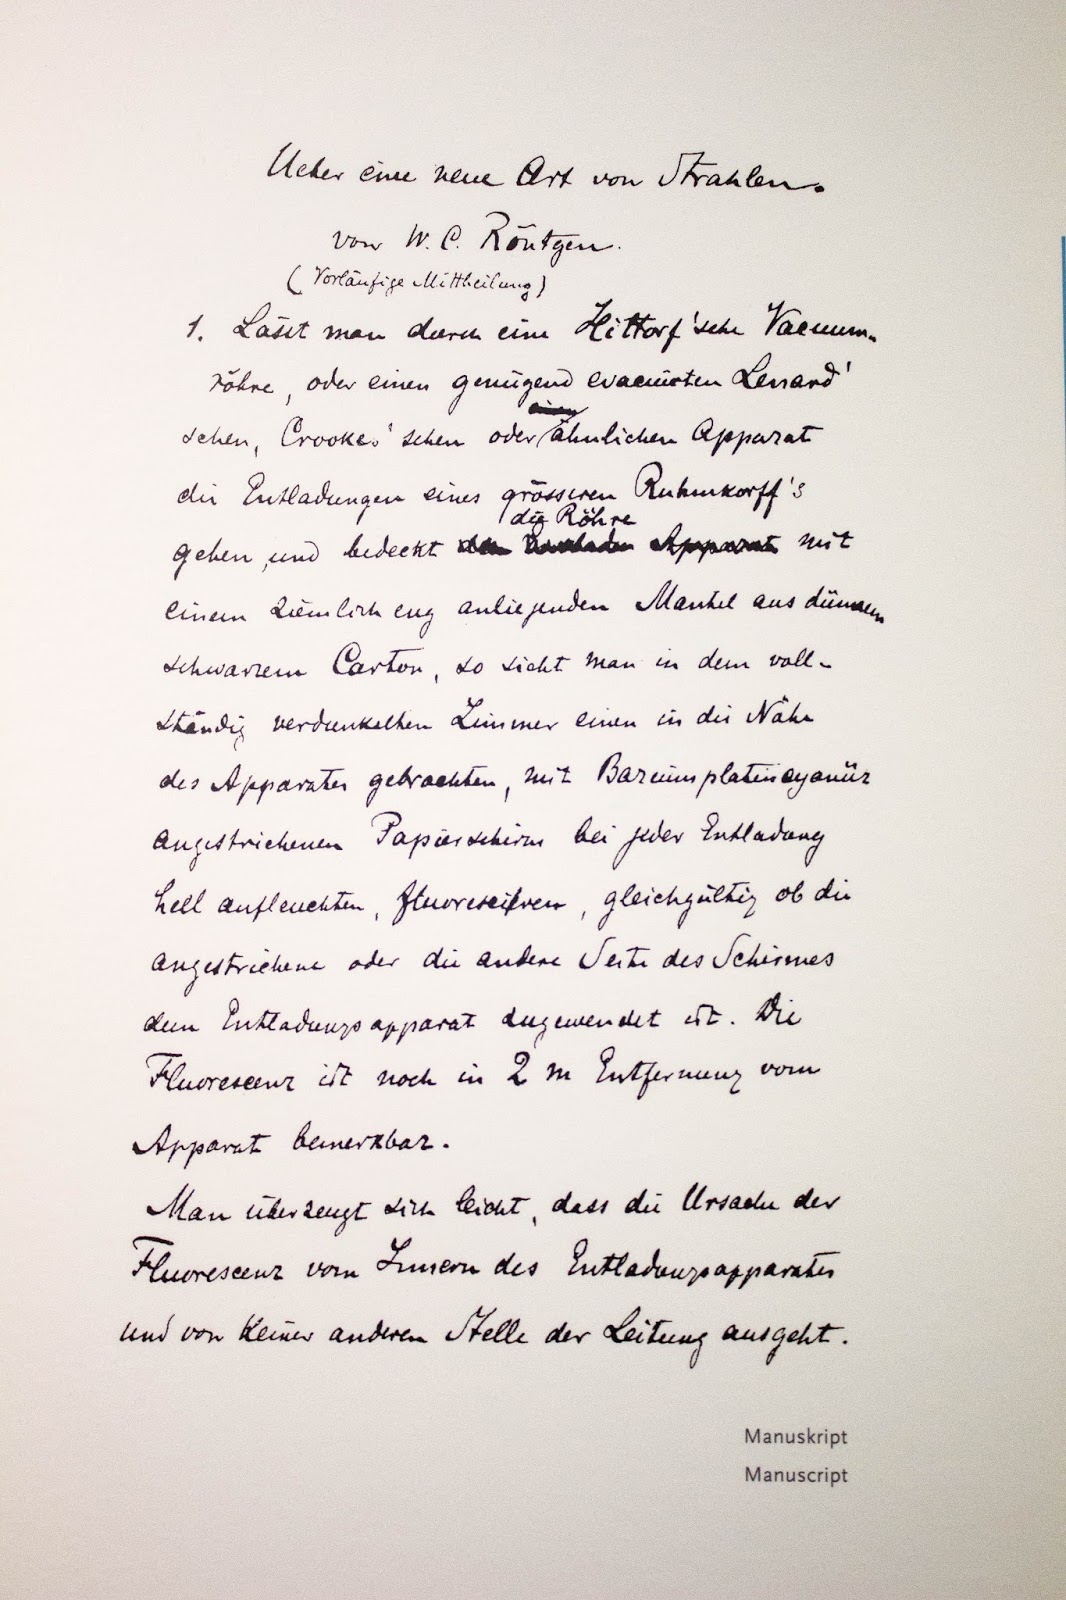 Ueber eine neue Art von Strahlen.
von W. C. Röntgen.
(Vorläufige Mittheilung)
1. Lässt man durch eine Hittorf'sche Vacuum-
röhre, oder einen genügend evacuirten Lenard'
einen
schen, Crookes'schen oder ähnlichen Apparat
die Entladungen eines grösseren Ruhmkorff's
die Röhre
gehen, und bedeckt den Apparat mit
einem ziemlich eng anliegenden Mantel aus dünnem
schwarzem Carton, so sieht man in dem voll-
ständig verdunkelten Zimmer einen in die Nähe
des Apparates gebrachten, mit Bariumplatincyanür
angestrichenen Papierschirm bei jeder Entladung
hell aufleuchten, fluoresciren, gleichgültig ob die
angestrichene oder die andere Seite des Schirmes
dem Entladungsapparat zugewendet ist. Die
Fluorescenz ist noch in 2 m Entfernung vom
Apparat bemerkbar.
Man überzeugt sich leicht, dass die Ursache der
Fluorescenz vom Innern des Entladungsapparates
und von keiner anderen Stelle der Leitung ausgeht.
Manuskript
Manuscript